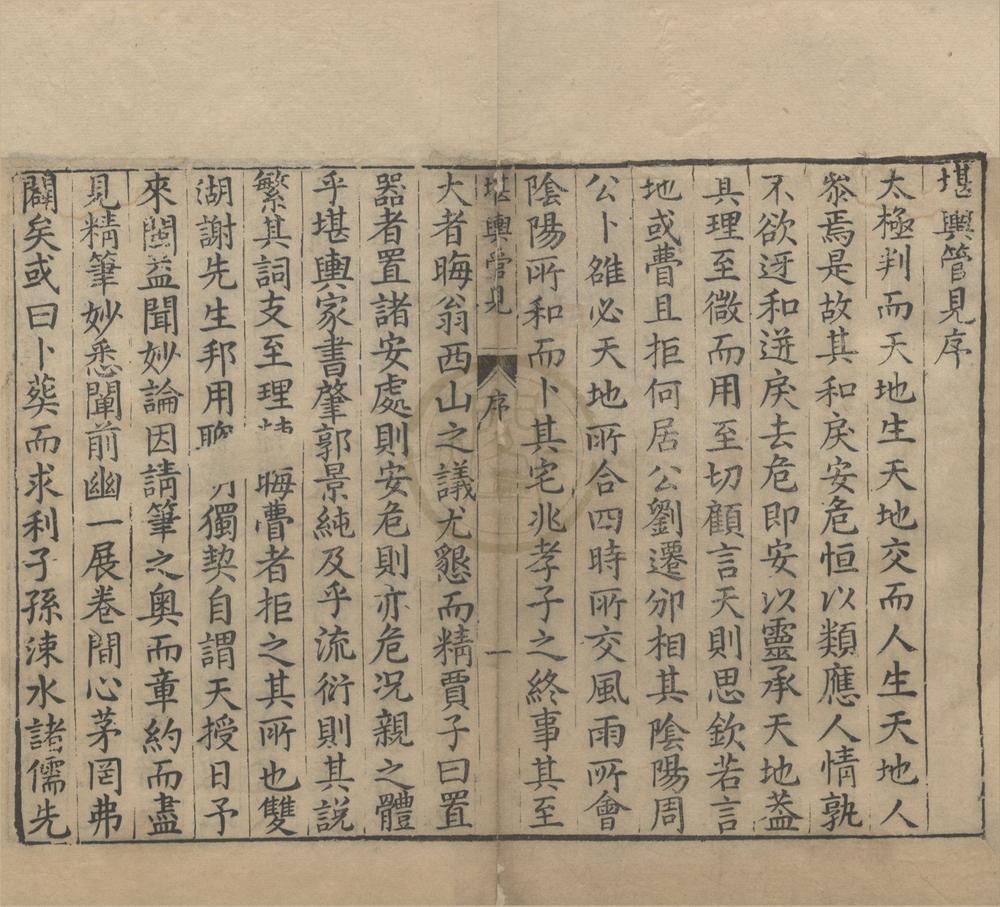 堪輿管見序
太極判而天地生天地交而人生天地人
叅焉是故其和戾安危恒以類應人情孰
不欲迓和迸戾去危即安以靈承天地葢
其理至微而用至切顧言天則思欽若言
地或瞢且拒何居公劉遷邠相其陰陽周
公卜雒必天地所合四時所交風雨所會
陰陽所和而卜其宅兆孝子之終事其至
堪輿管見 序 一
大者晦翁西山之議尤懇而精賈子曰置
器者置諸安處則安危則亦危况親之體
乎堪輿家書肇郭景純及乎流衍則其説
繁其詞支至理 晦瞢者拒之其所也雙
湖謝先生邦用聰 獨契自謂天授日予
來閩益聞妙論因請筆之奥而章約而盡
見精筆妙悉闡前幽一展卷間心茅罔弗
闢矣或曰卜葬而求利子孫涑水諸儒先